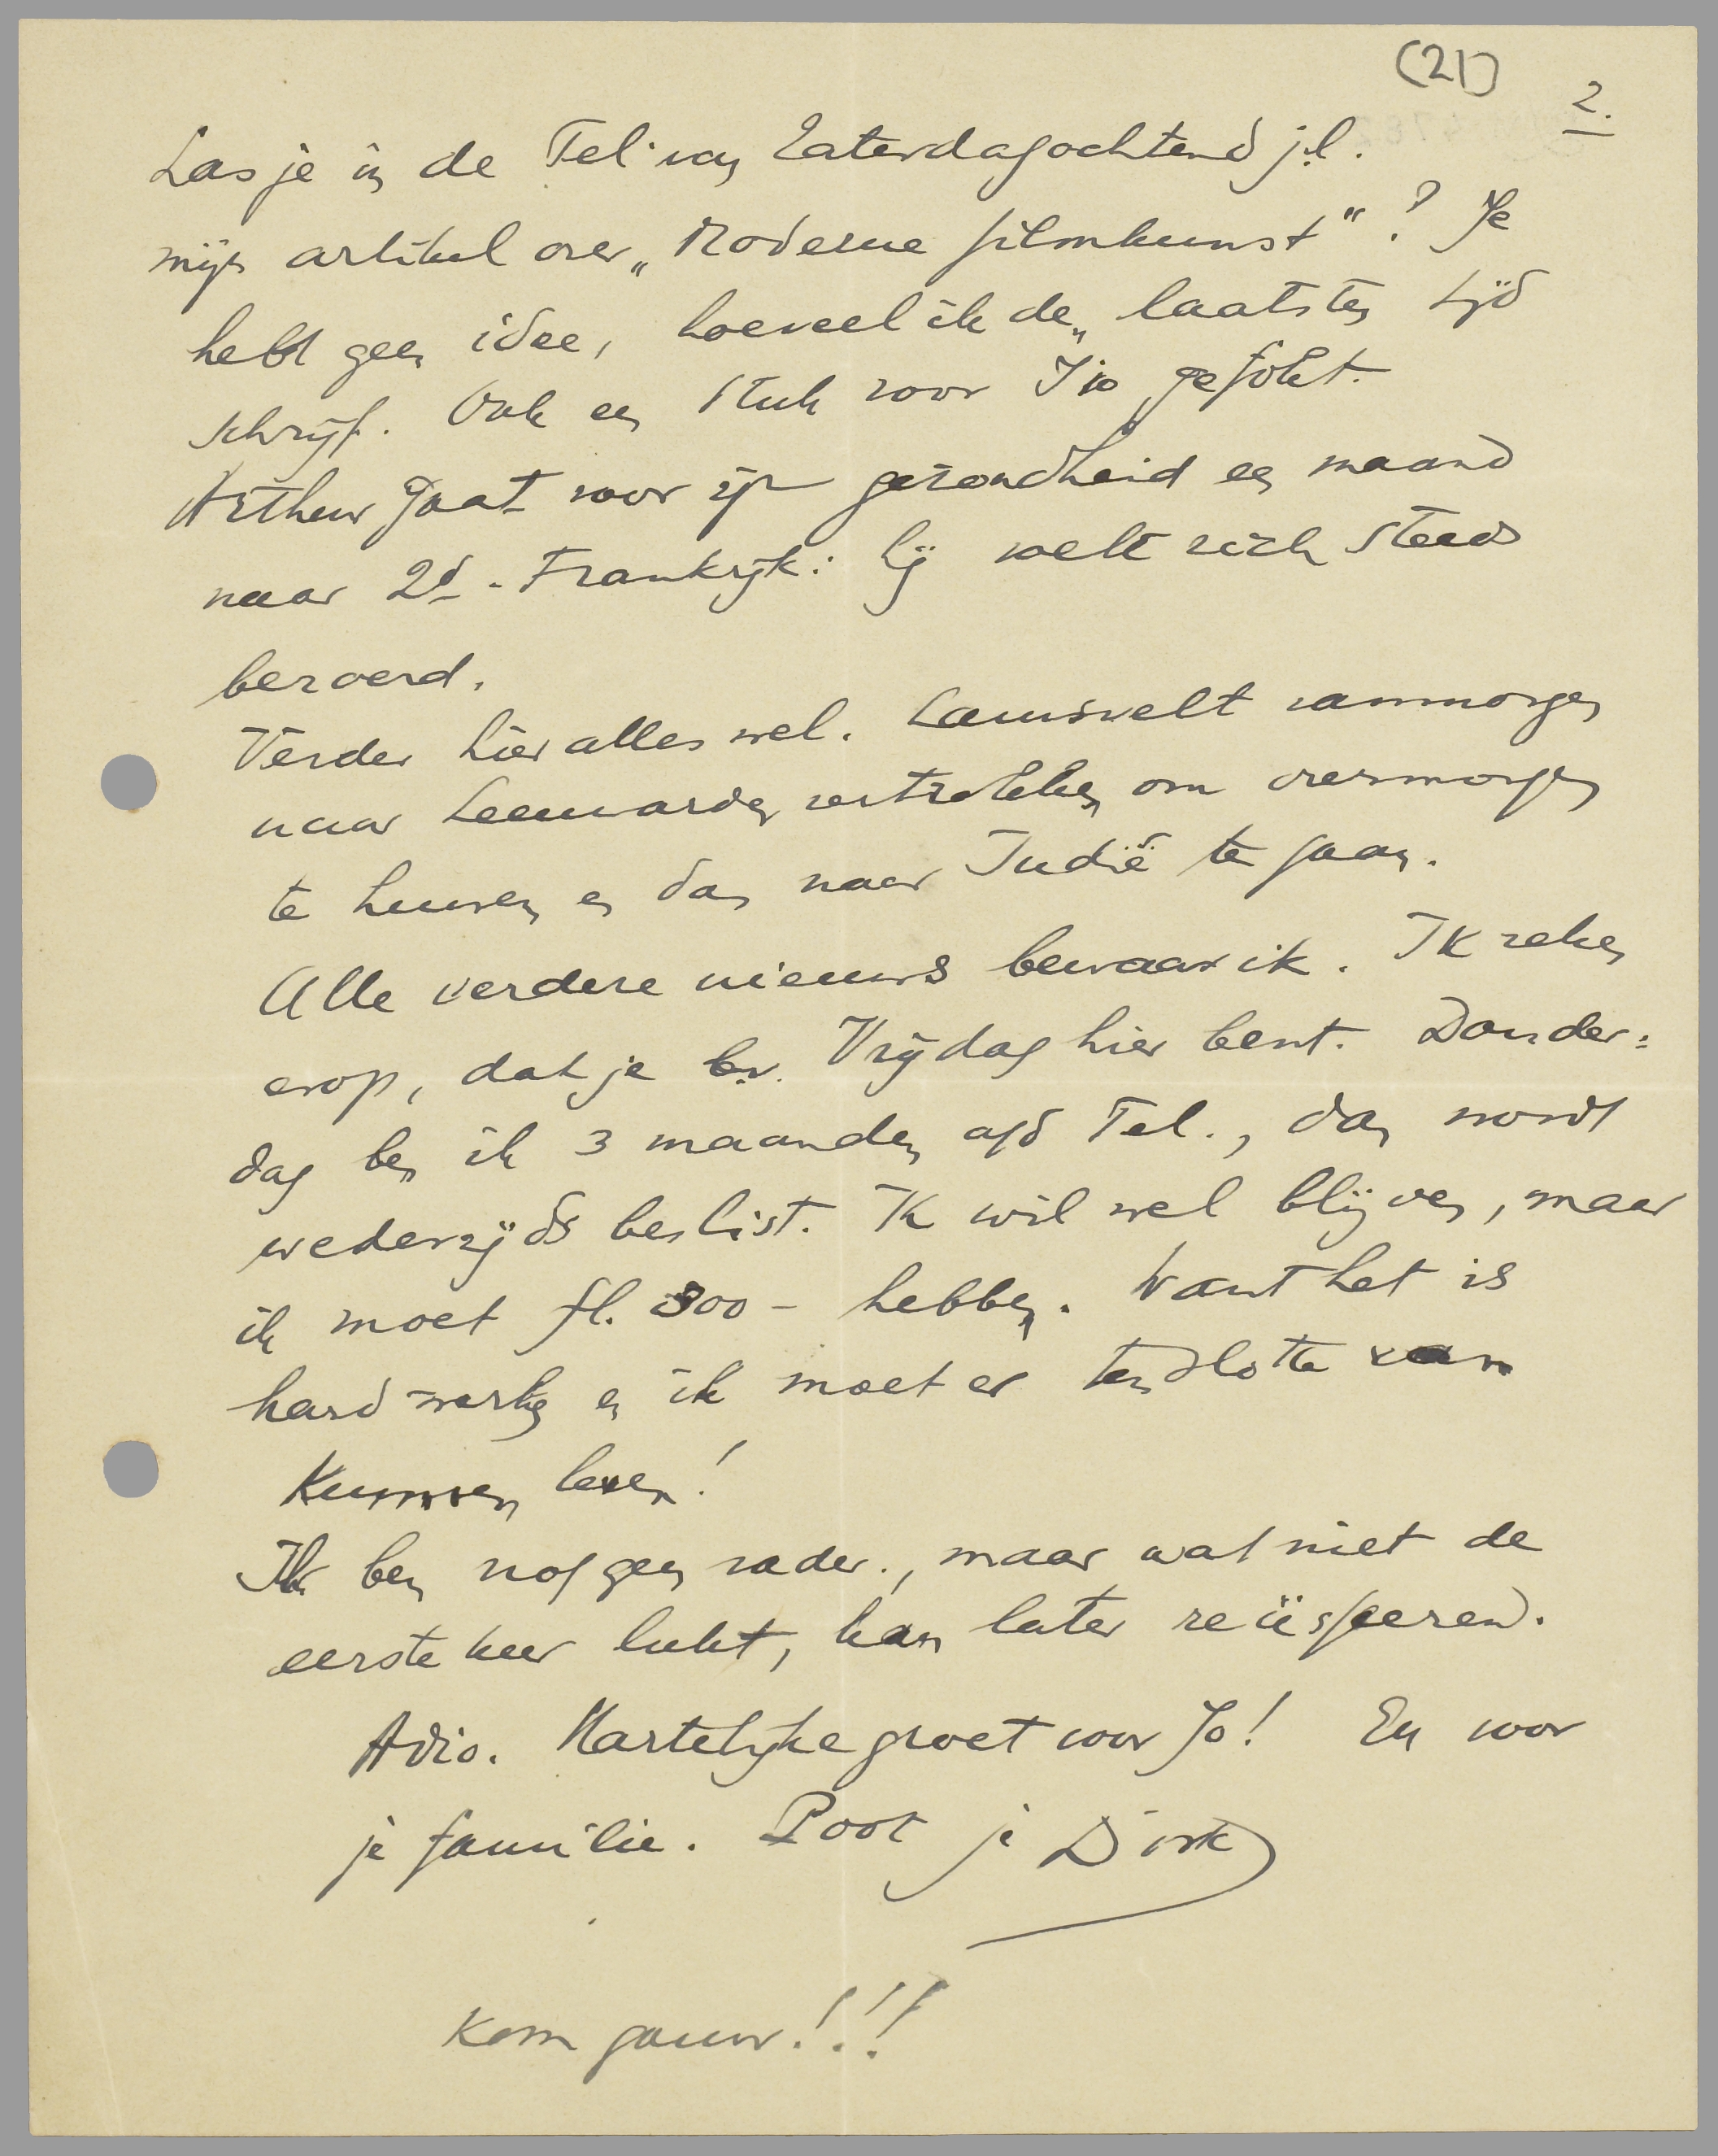 (21)
2.
Las je in de Tel. van Zaterdagochtend j.l.
mijn artikel over „Moderne filmkunst"? Je
hebt geen idee, hoeveel ik de laatsten tijd
schrijf. Ook een stuk voor I 10 gefökt.
Arthur gaat voor zijn gezondheid een maand
naar Zd.-Frankrijk: hij voelt zich steeds
beroerd.
Verder hier alles wel. Lamsvelt vanmorgen
naar Leeuwarden vertrokken om overmorgen
te huwen en dan naar Indië te gaan.
Alle verdere nieuws bewaar ik. Ik reken
erop, dat je bv. Vrijdag hier bent. Donder=
dag ben ik 3 maanden a/d Tel., dan wordt
wederzijds beslist. Ik wil wel blijven, maar
ik moet fl. 300 - hebben. Want het is
hard werken en ik moet er tenslotte van
Kunnen leven!
Ik ben nog geen vader., maar wat niet de
eerste keer lukt, kan later reüsseeren.
Adio. Hartelijke groet voor Jo! En voor
je familie. Poot je Dirk
Kom gauw!!!